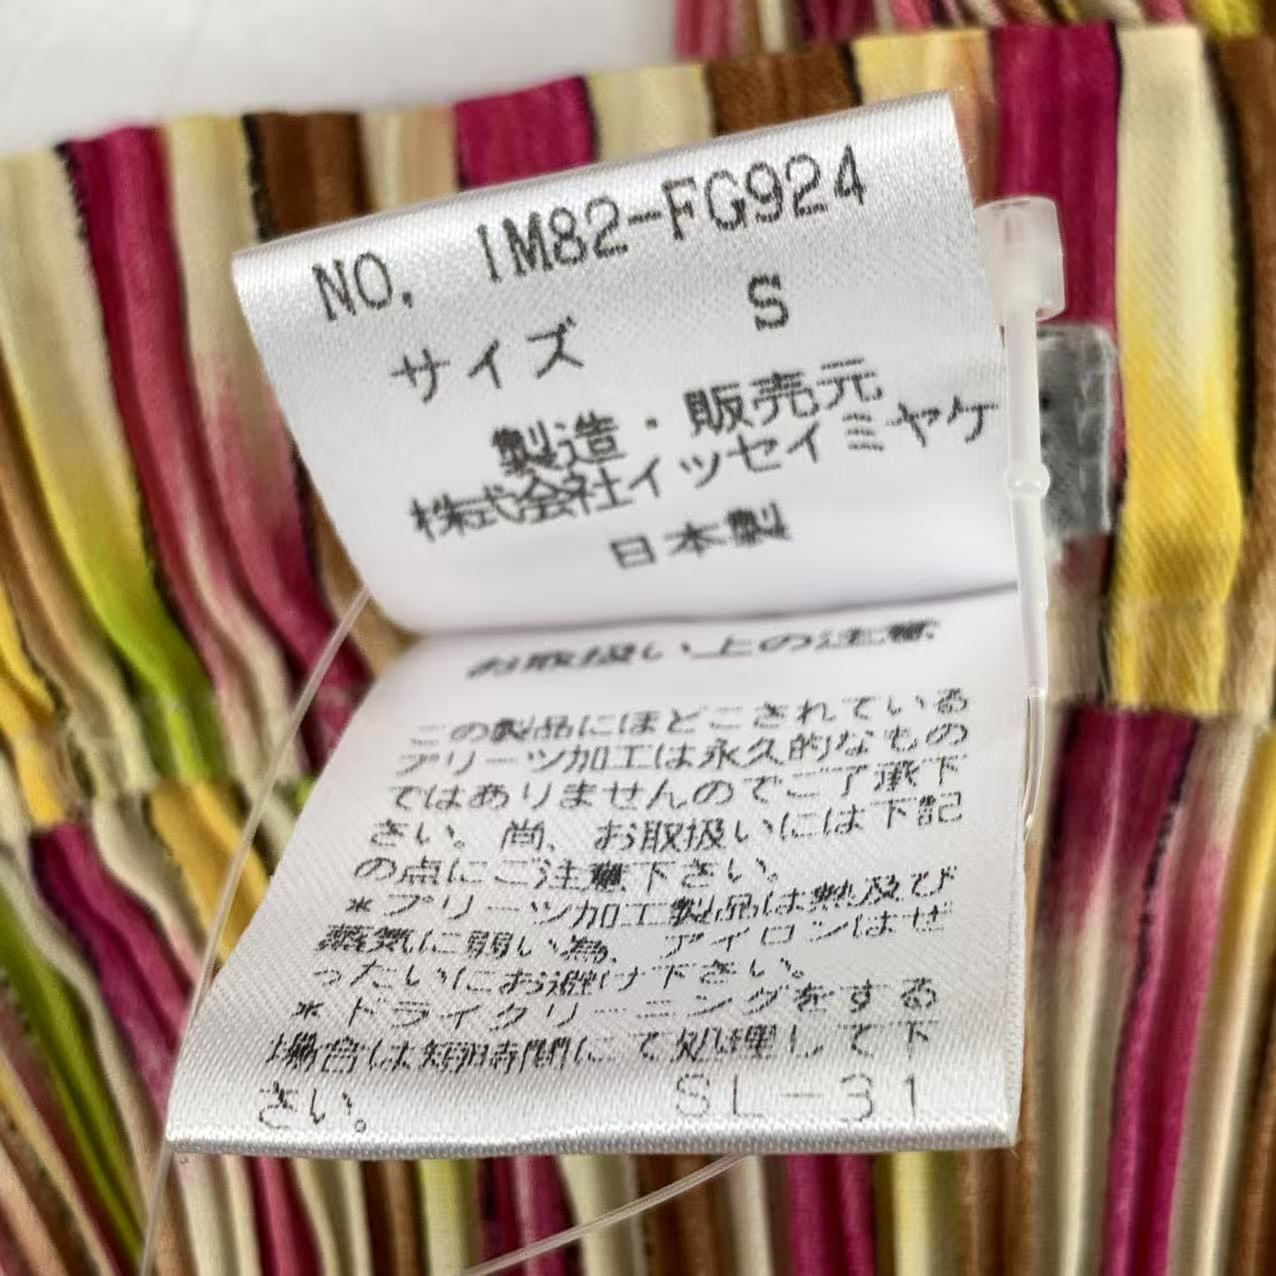 NO. IM82-FG924
サイズ S
製造・販売元
株式会社イッセイミヤケ
日本製
お取扱い上の注意
この製品にほどこされている
プリーツ加工は永久的なもの
ではありませんのでご了承下
さい。尚、お取扱いには下記
の点にご注意下さい。
*プリーツ加工製品は熱及び
蒸気に弱い為、アイロンはぜ
ったいにお避け下さい。
*ドライクリーニングをする
場合は短時間にて処理して下
さい。 SL-31